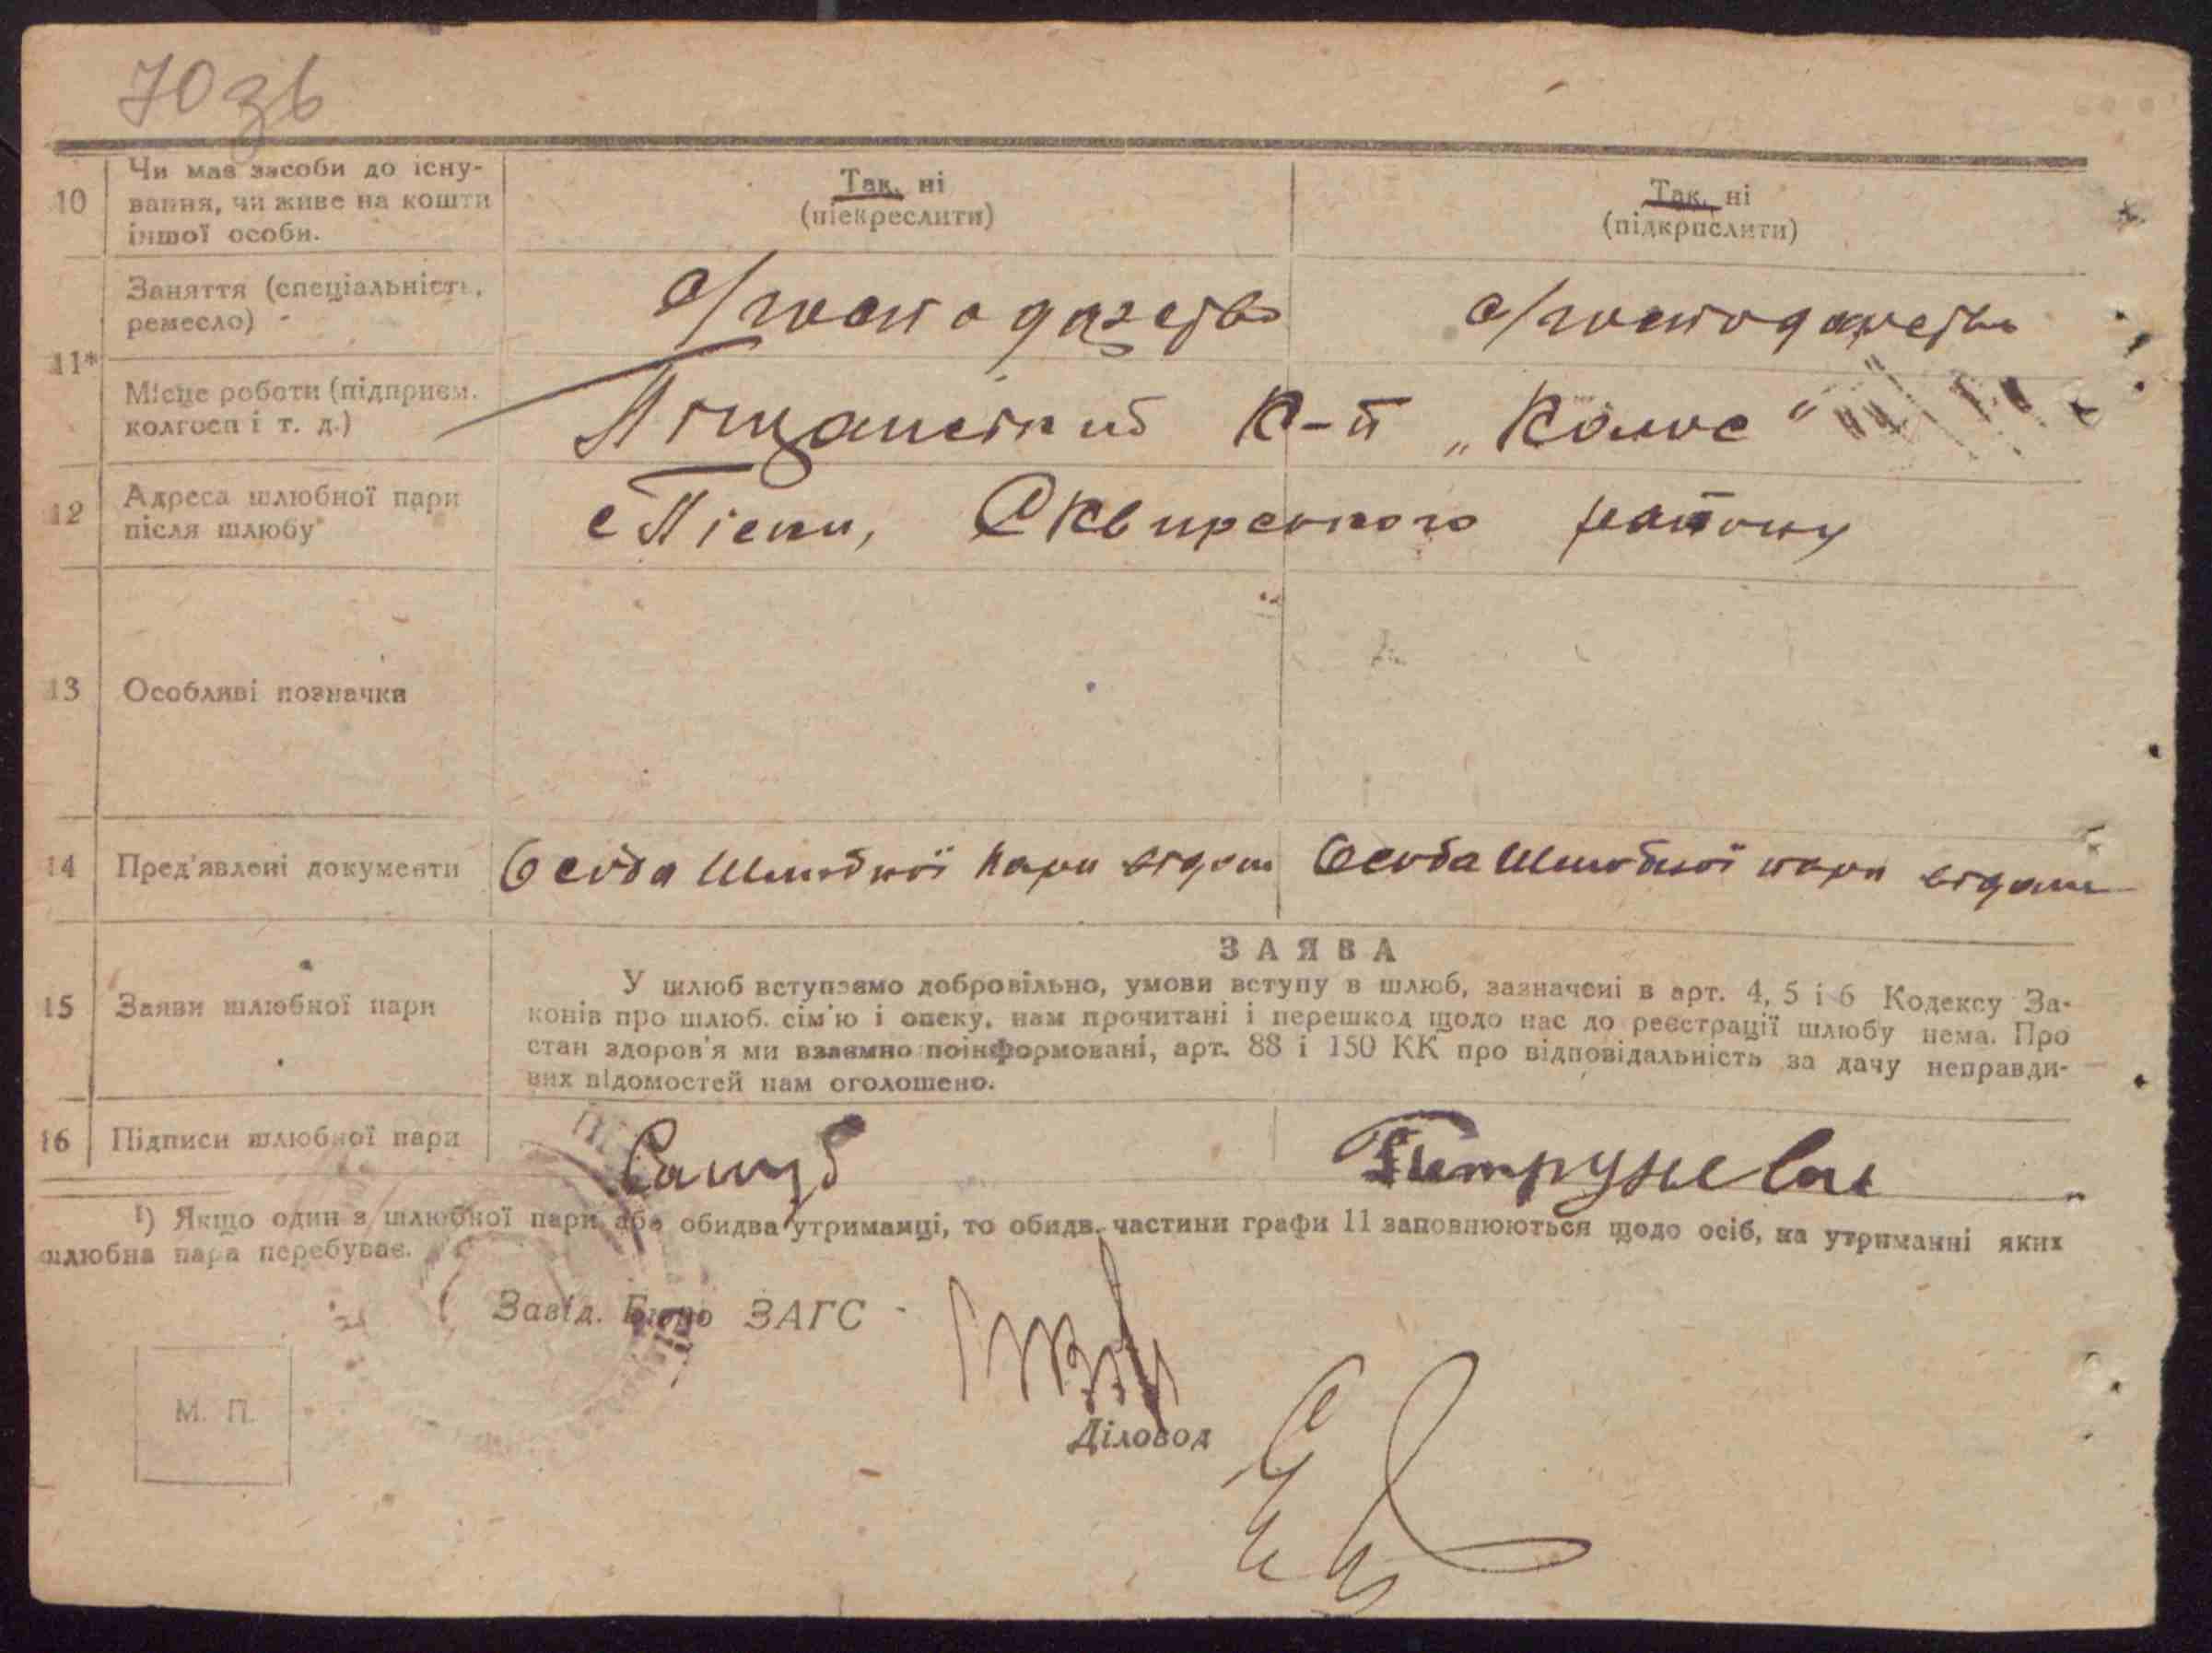 70 зв
10 Чи має засоби до існу-
вання, чи живе на кошти
іншої особи.
Так, ні
(піекреслити)
Так, ні
(підкрпслити)
11*
Заняття (спеціальність,
ремесло)
с/господарство
с/господарство
Місце роботи (підприєм.
колгосп і т. д.)
Піщанський к-п „Колос"
12 Адреса шлюбної пари
після шлюбу
с Піски, Сквирського району
13 Особливі позначки
14 Пред'явлені документи
Особа шлюбної пари відом
Особа шлюбної пари відом
15 Заяви шлюбної пари
ЗАЯВА
У шлюб вступаємо добровільно, умови вступу в шлюб, зазначені в арт. 4, 5 і 6 Кодексу За-
конів про шлюб. сім'ю і опеку, нам прочитані і перешкод щодо нас до реєстрації шлюбу нема. Про
стан здоров'я ми взаємно поінформовані, арт. 88 і 150 КК про відповідальність за дачу неправди-
вих відомостей нам оголошено.
16 Підписи шлюбної пари
¹) Якщо один з шлюбної пари або обидва утриманці, то обидв. частини графи 11 заповнюються щодо осіб, на утриманні яких
шлюбна пара перебуває.
Завід. Бюро ЗАГС
М. П.
Діловод